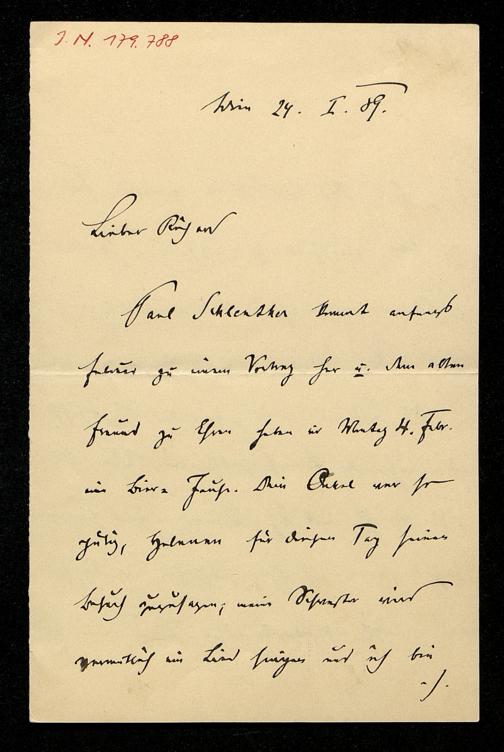 J. N. 179.788
Wien 24. I. 89.
Lieber Richard
Paul Schlenther kommt anfangs
Februar zu einem Vortrag her u. dem alten
Freund zu Ehren haben wir Montag 4. Febr.
ein Bier= Jause. Dein Onkel war so
gütig, Helenen für diesen Tag seinen
Besuch zuzusagen; meine Schwester wird
vermutlich ein Lied singen und ich bin